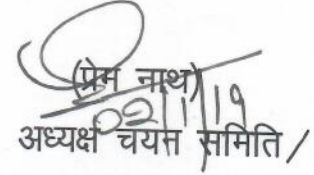 (प्रेम नाथ)
02/1/19
अध्यक्ष चयन समिति /